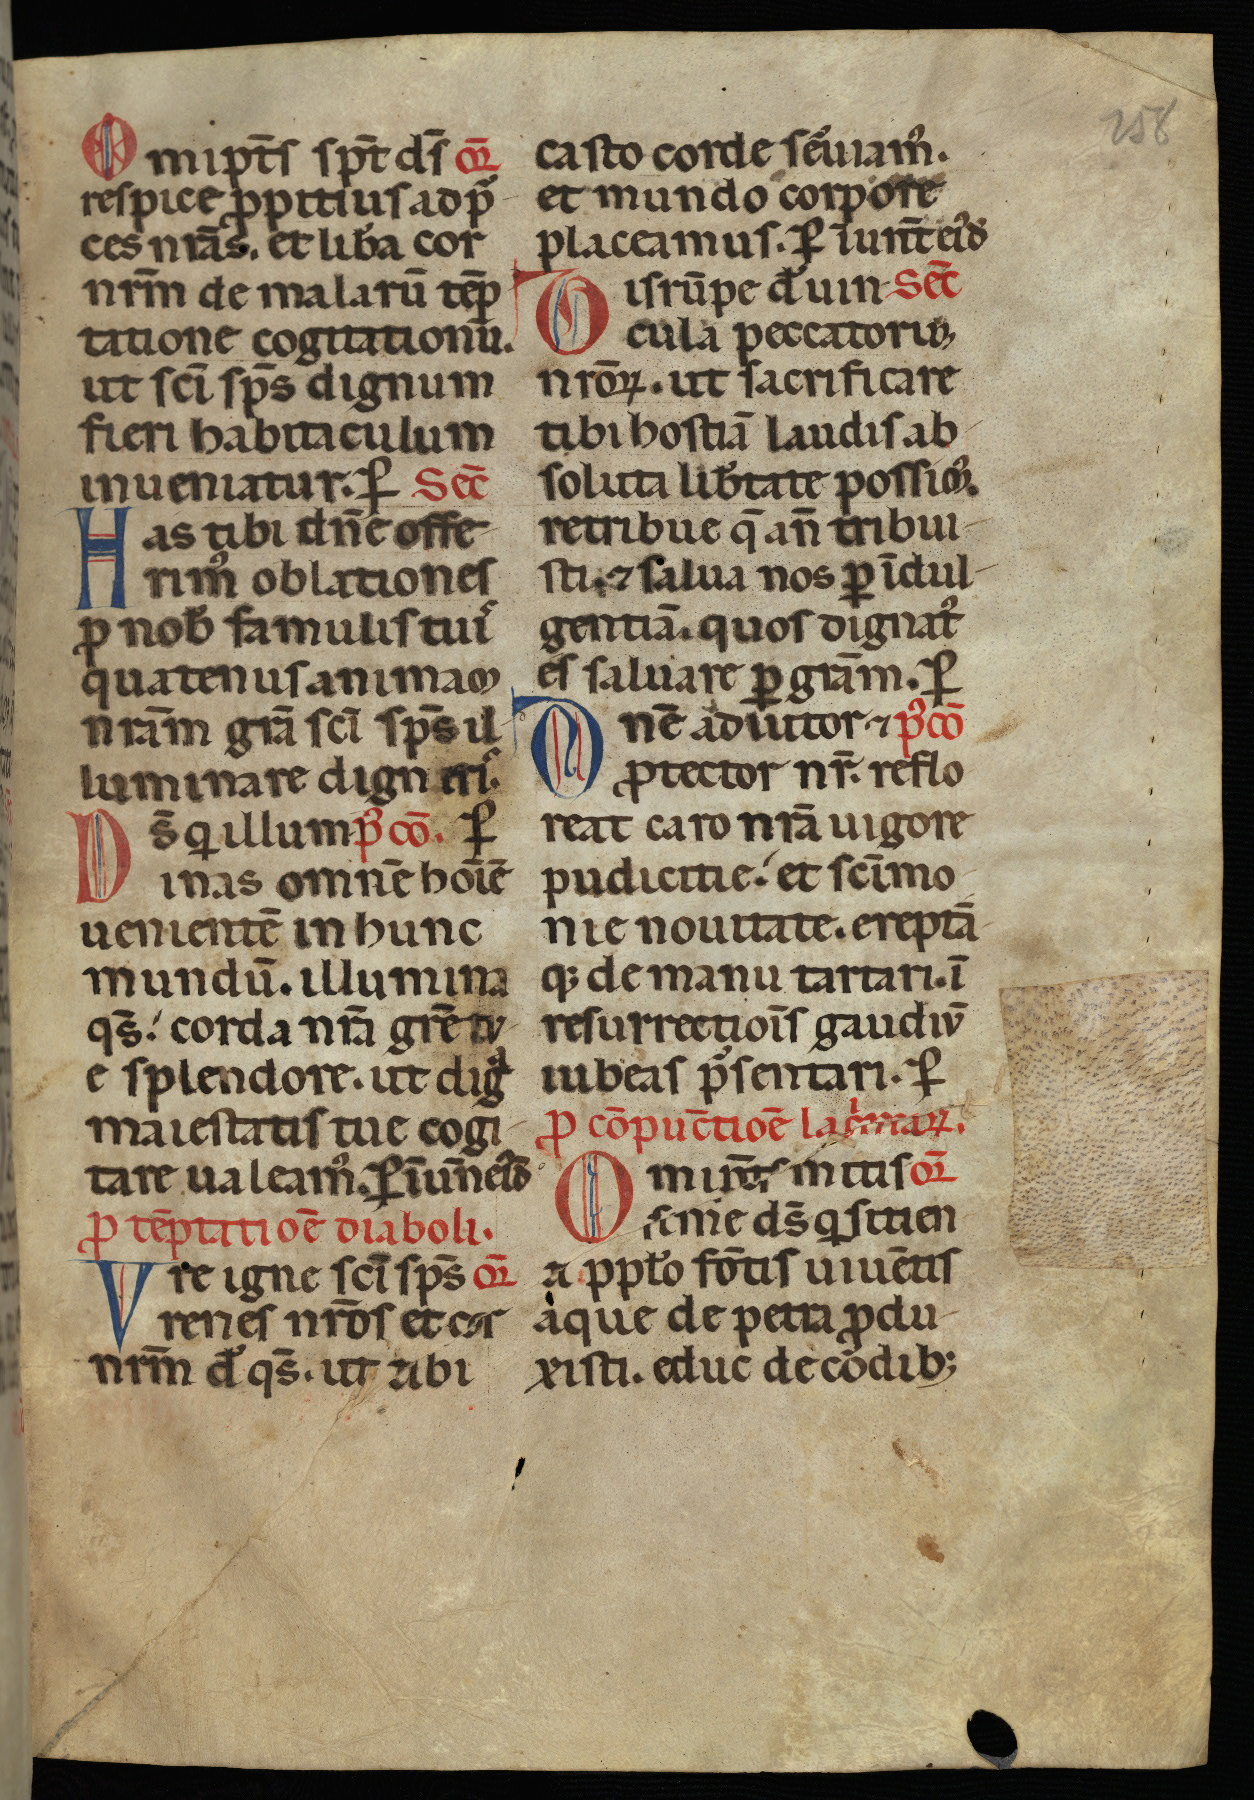 258
Omip̄ts sp̄t ds̄ or̄
respice ꝓpitius ad p̄
ces nrās. et lib̄a cor
nrm̄ de malarū tēp
tatione cogitationū.
ut scī sp̄s dignum
fieri habitaculum
inueniatur. ꝑ Sec̄
Has tibi dn̄e offe
rim᾿ oblationes
ꝓ nob̄ famulis tuis
quatenus animam
nrām grā scī sp̄s il
luminare digneris.
Ds̄ q̄ illum p᾿cō. ꝑ
inas omnē hoīē
uenientē in hunc
mundū. illumina
qs̄. corda nrā grē tu
e splendore. ut diḡ
maiestatis tue cogi
tare ualeam᾿. ꝑ iūn eīd
ꝓ tēptatioē diaboli.
Vre igne scī sp̄s or̄
renes nrōs et cor
nrm̄ d̄ qs̄. ut tibi
casto corde s̄euiam᾿.
et mundo corpore
placeamus. ꝑ iunt̄ eīd
Disrūpe d̄ uin Sec̄
cula peccatorum
nrōꝝ. ut sacrificare
tibi hostiā laudis ab
soluta lib̄tate possim᾿.
retribue q̄ an̄ tribui
sti. ⁊ salua nos ꝑ īdul
gentiā. quos dignat᾿
es saluare ꝑ grām. ꝑ
Dnē adiutor ⁊ p᾿cō
ꝓtector nr̄. reflo
reat caro nrā uigore
pudicitie. et scīmo
nie nouitate. ereptā
q; de manu tartari. ī
resurrectiōīs gaudiū
iubeas p᾿sentari. ꝑ
ꝓ cōpūctioē lac̄maꝝ.
Omip̄ts mitis or̄
sime ds̄ q̄ sitien
ti ppl̄o fōtis uiuētis
aque de petra ꝓdu
xisti. educ de cōdib;